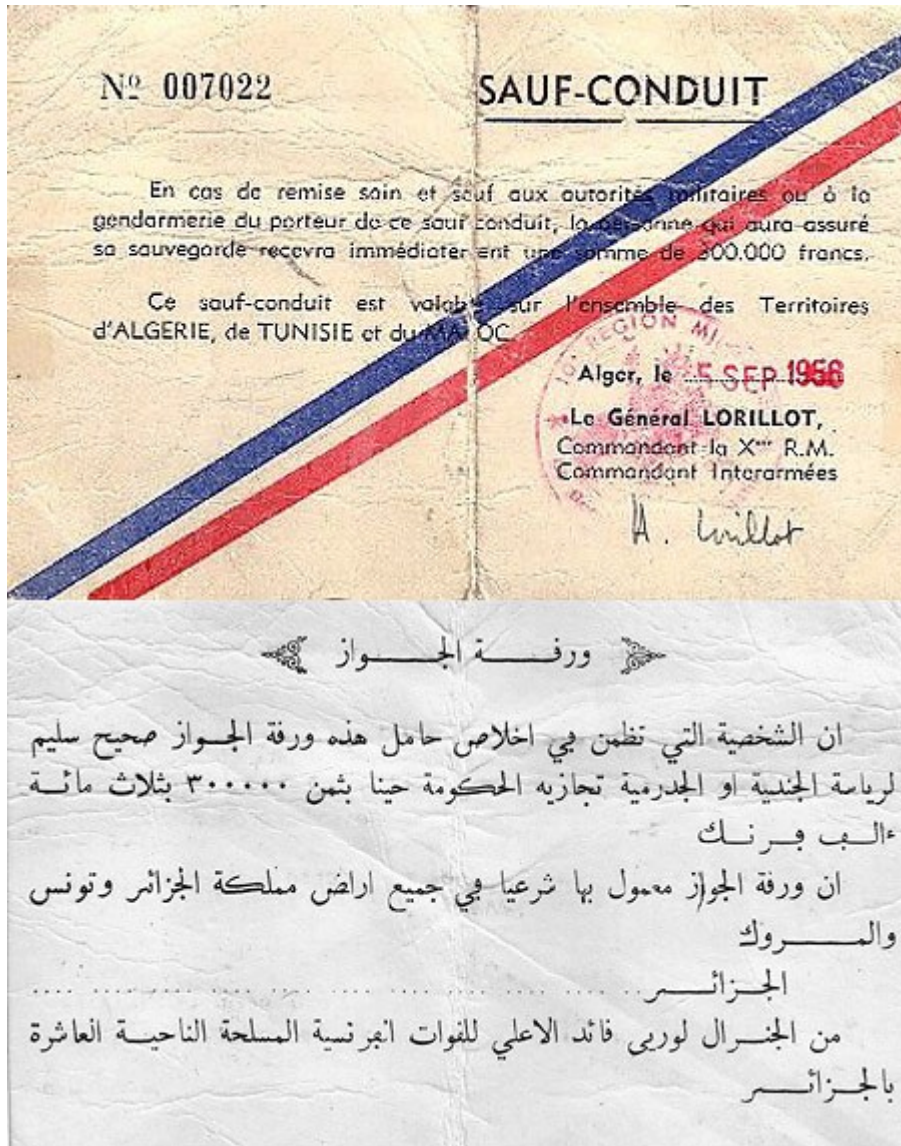 Nº 007022
SAUF-CONDUIT
En cas de remise sain et sauf aux autorités militaires ou à la
gendarmerie du porteur de ce sauf conduit, la personne qui aura assuré
sa sauvegarde recevra immédiatement une somme de 300.000 francs.
Ce sauf-conduit est valable sur l'ensemble des Territoires
d'ALGERIE, de TUNISIE et du MAROC.
Xº REGION MI
Alger, le 5 SEP 1956
Le Général LORILLOT,
Commandant la Xᵐᵉ R.M.
Commandant Interarmées
H. Lorillot
ورفــة الجــواز
ان الشخصية التي تظمن في اخلاص حامل هذه ورفة الجــواز صحيح سليم
لرياسة الجندية او الجدرمية تجازيه الحكومة حينا بثمن ٣٠٠٠٠٠ بثلاث مائــة
ءالــب ڢــرنــك
ان ورفة الجواز معمول بها شرعيا في جميع اراض مملكة الجزائر وتونس
والمــــروك
الجــزائــــر
من الجنــرال لوريى فائد الاعلي للفوات الڢرنسية المسلحة الناحيــة العاشرة
بالجــزائــــر